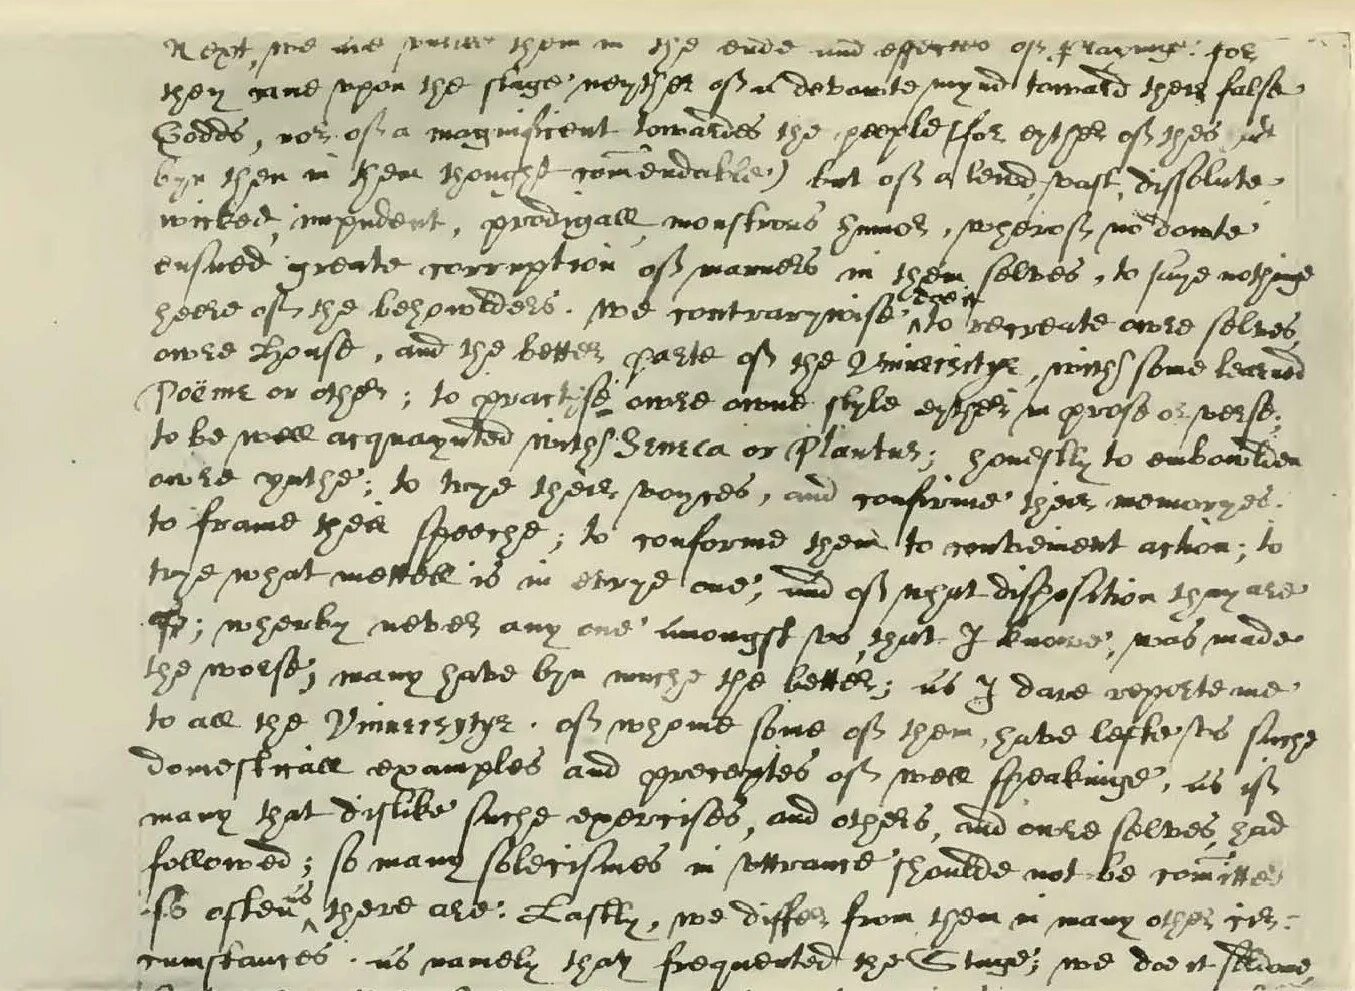 Next, we are unlike them in the ende and effectes of Playinge: for
they came vpon the stage neyther of a devoute mynd toward theis false
Godds, nor of a magnificent towardes the people (for eyther of thes
byn then in them thought com̄endable) but of a lewd, vast, dissolute,
wicked, impudent, prodigall, monstrous humor, wherof no doute
ensued greate corruption of maners in them selves, to saye nothinge
heere of the behowlders. We contrarywise doe it to recreate owre selves,
owre House, and the better parte of the Vniversitye, with some learned
Poëme or other; to practyse owre owne style eyther in prose or verse;
to be well acquaynted with Seneca or Plautus; honestly to embowlden
owre yuthe; to trye their voyces, and confirme their memoryes.
to frame their speeche; to conforme them to convenient action; to
trye what mettell is in evrye one, and of what disposition thay are
of; wherby never any one amongst vs, that I knowe, was made
the worse, many have byn muche the better; as I dare reporte me
to all the Vniversitye. Of whome some of them, have lefte vs suche
domesticall examples and preceptes of well speakinge, as if
many that dislike suche exercises, and others, and owre selves, had
followed; so many solecismes in vttrance shoulde not be com̄itted
so often as there are. Lastly, we differ from them in many other cir-
cumstances. as namely thay frequented the Stage; we doe it seldome,